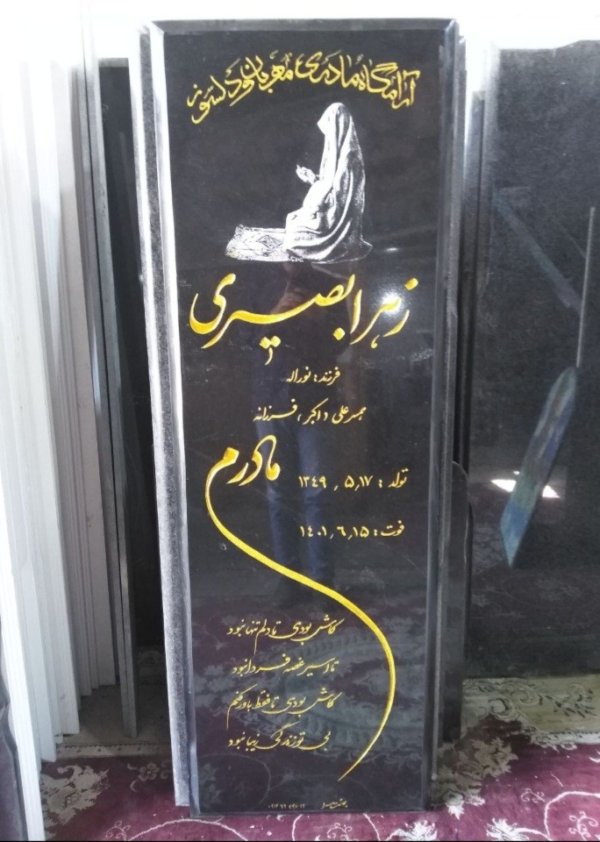 آرامگاه مادری مهربان و دلسوز
زهرا بصیری
فرزند: نوراله
همسر علی اکبر فرزانه
مادرم
تولد: ۱۳۴۹٫۵٫۱۷
فوت: ۱۴۰۱٫۶٫۱۵
کاش بودی تا دلم تنها نبود
تا اسیر غصه فردا نبود
کاش بودی تا فقط باور کنم
بی تو زندگی زیبا نبود